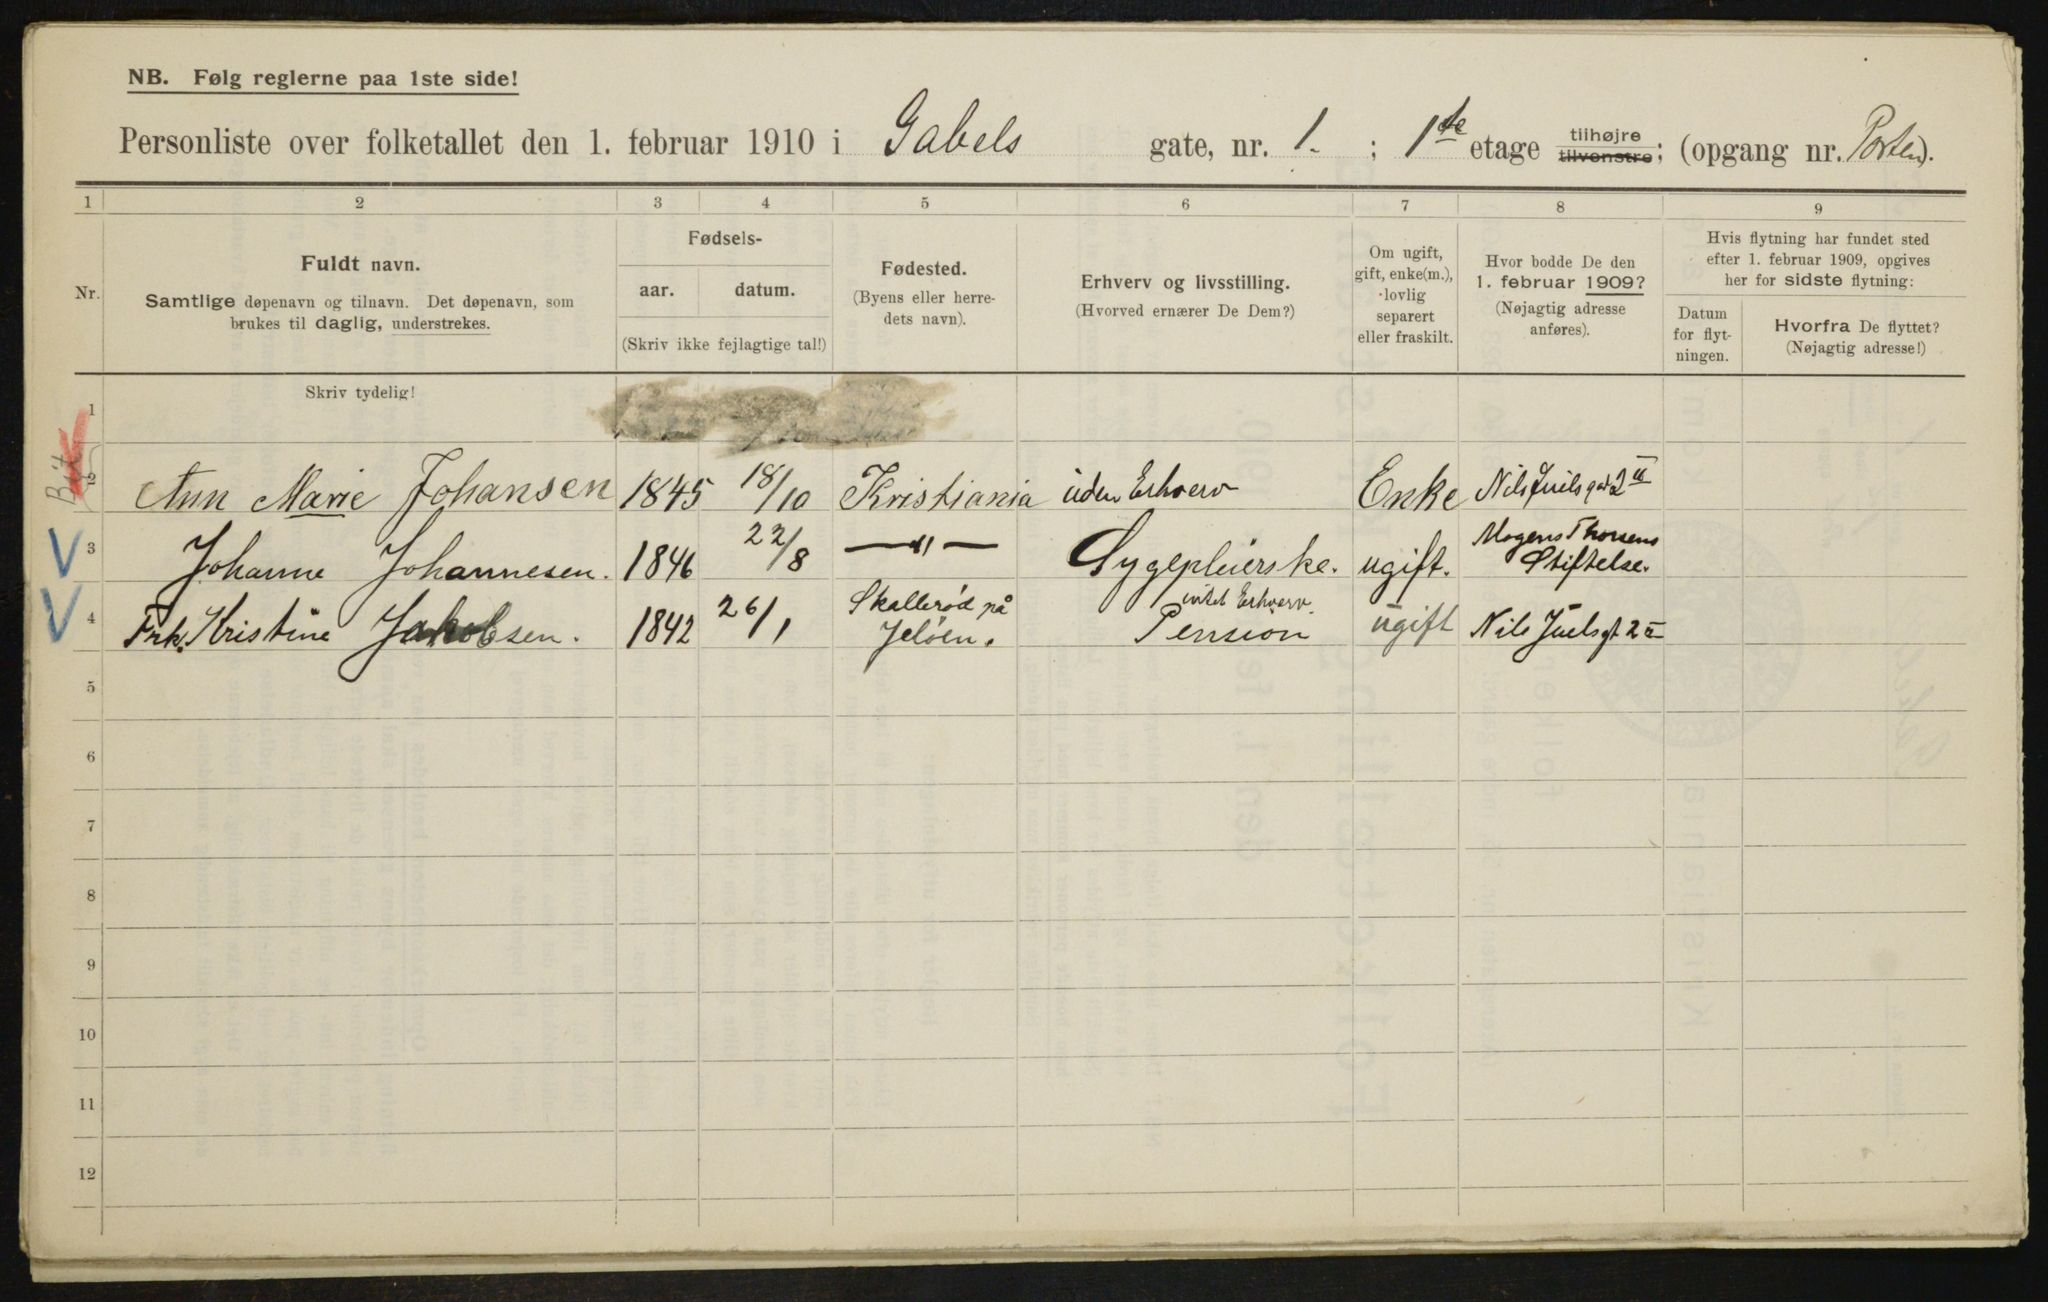 NB. Følg reglerne paa 1ste side!
Personliste over folketallet den 1. februar 1910 i Gabels gate, nr. 1. ; 1ste etage tilhøjre tilvenstre; (opgang nr. Porten).
1 2 3 4 5 6 7 8 9
Nr.
Fuldt navn.
Samtlige døpenavn og tilnavn. Det døpenavn, som
brukes til daglig, understrekes.
Fødsels-
aar. datum.
(Skriv ikke fejlagtige tal!)
Fødested.
(Byens eller herre-
dets navn).
Erhverv og livsstilling.
(Hvorved ernærer De Dem?)
Om ugift,
gift, enke(m.),
lovlig
separert
eller fraskilt.
Hvor bodde De den
1. februar 1909?
(Nøjagtig adresse
anføres).
Hvis flytning har fundet sted
efter 1. februar 1909, opgives
her for sidste flytning:
Datum
for flyt-
ningen.
Hvorfra De flyttet?
(Nøjagtig adresse!)
Skriv tydelig!
1
2 Ann Marie Johansen 1845 18/10 Kristiania uden Erhverv Enke Nils Juels gat 2 II
3 Johanne Johannesen. 1846 22/8 —"— Sygepleierske. ugift. Mogens Thorsens Stiftelse.
4 Frk. Kristine Jakobsen. 1842 26/1 Skallerød på Jeløen. intet Erhverv. Pension ugift Nils Juels gt 2 II
5
6
7
8
9
10
11
12